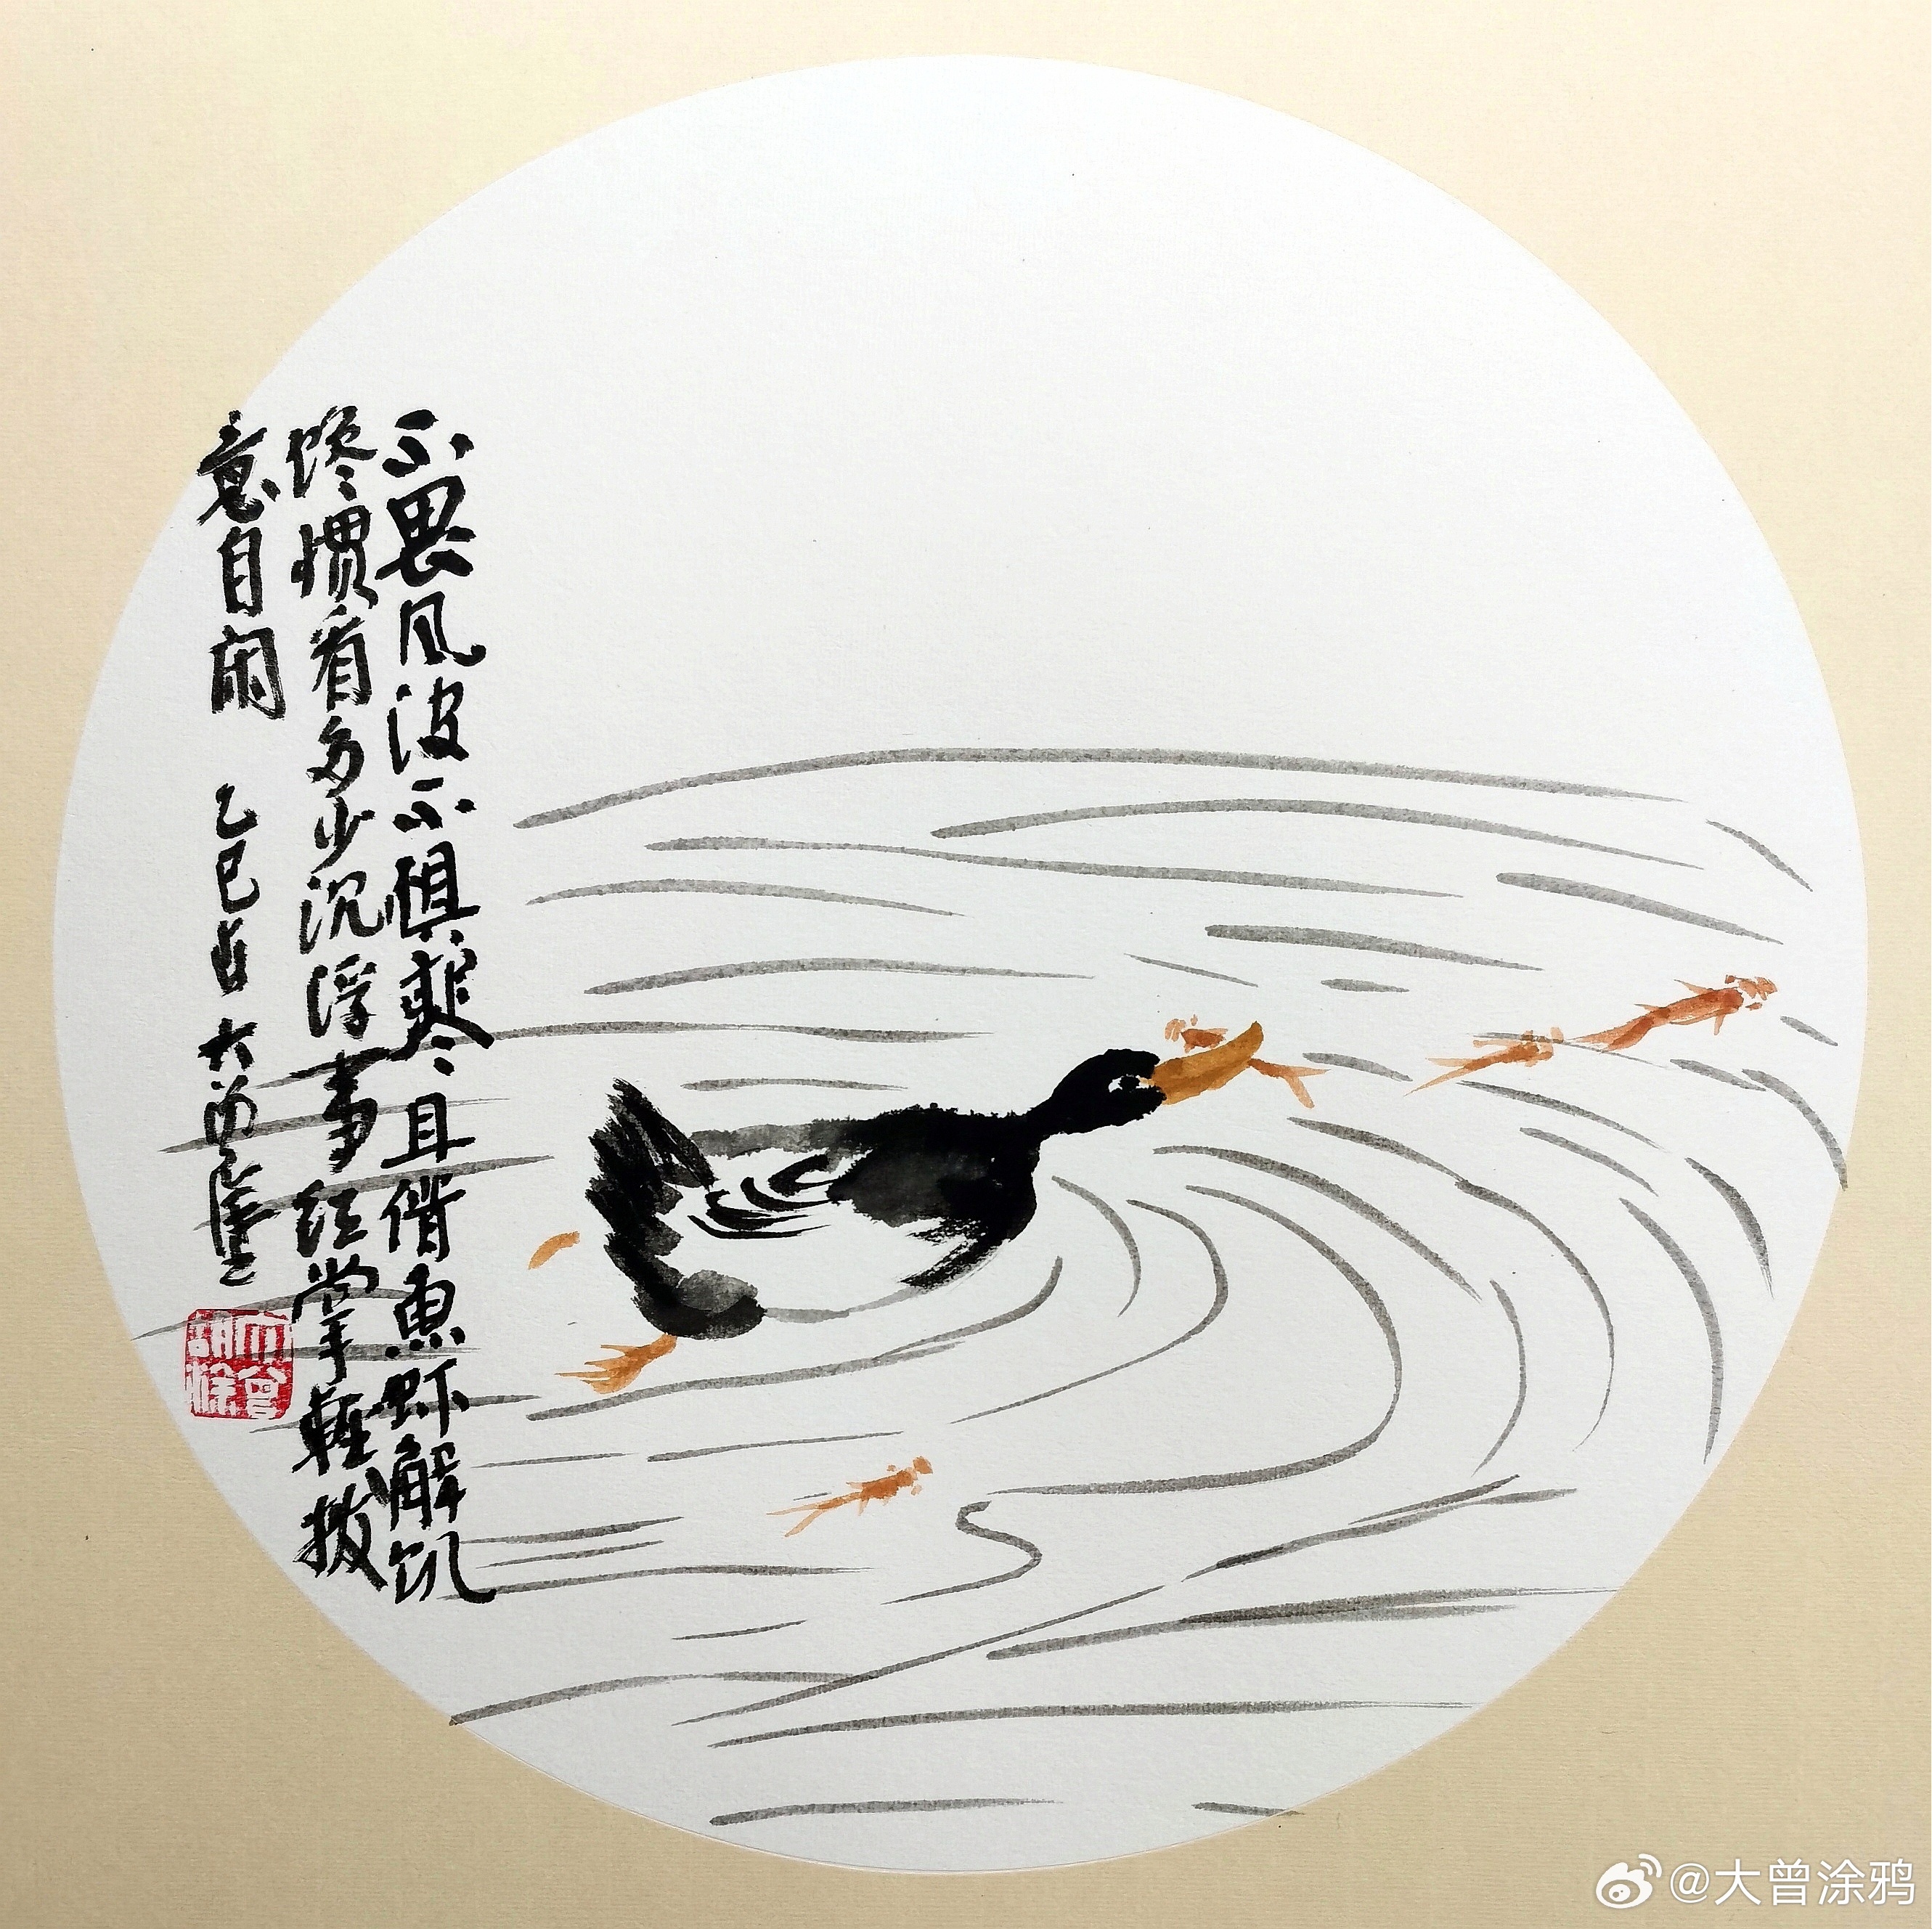 不畏风波不惧寒且借魚虾解饥
馋惯看多少沉浮事红掌輕拨
意自闲 乙巳 大曾
大曾胡涂
@大曾涂鸦